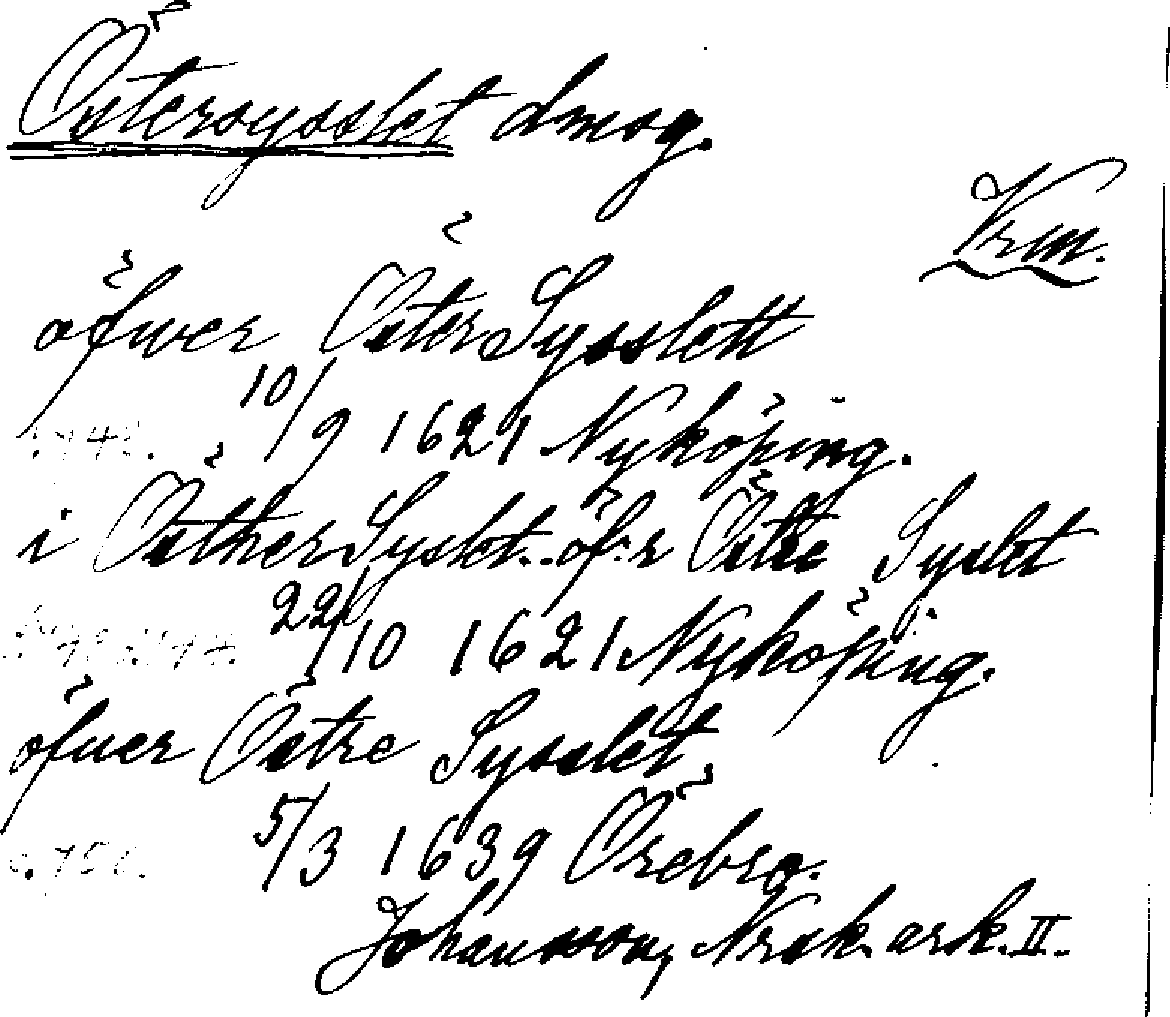 Östersysslet dmsg.
Vrm.
öfwer Öster Sysslett
10/9 1621 Nyköping.
i Östher Syslet. öf:r Östre Syslet
22/10 1621 Nyköping.
öfuer Östre Sysslet
5/3 1639 Örebro.
Johansson, Nrak. ark. II.